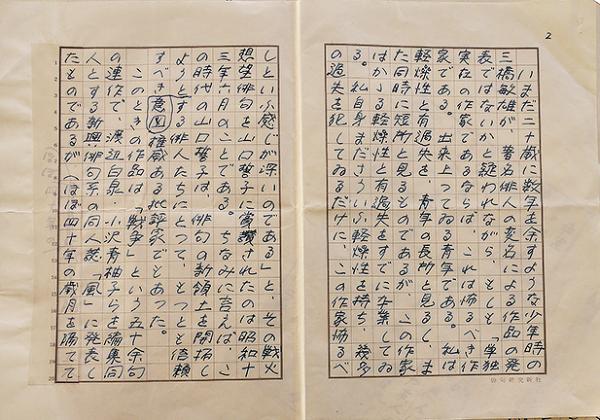 2
いまだ二十歳に数年を余すような少年時の
三橋敏雄が、著名俳人の変名による「作品の発
表ではないかと疑われながら、
実在の作家である。これは
家である。出来上つてゐる青年である。私は
軽燥性と過失とを、青年の長所と見るし、ま
た同時に短所とも見るのであるが、この作家
はかゝる軽燥性と過失
る。私自身まだ軽燥性を持ち、幾多
の過失を犯してゐるだけに、この作家恐るべ
俳句研究新社
しといふ感じが深いのである」と、その戦火
想望俳句を山口誓子に賞讃されたのは昭和十
三年六月のことである。ちなみに言えば、こ
の時代の山口誓子は、俳句の新領土を開拓し
ようとする俳人たちにとつて、もっとも信頼
すべき意図権威ある批評家でもあった。
このときの作品は「戦争」という五十余句
の連作で、渡辺白泉・小沢青柚子らが編集同
人とする新興俳句系の同人誌「風」に発表し
たものであるが、ほぼ四十年の歳月を隔て